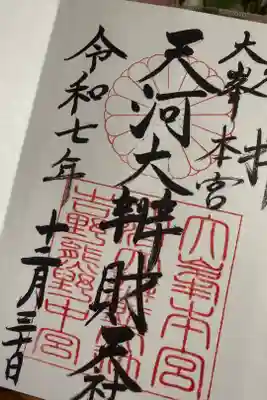 大峯本宮
天河大辨財天社
令和七年
十二月三十日
大峯本宮
吉野熊野中宮